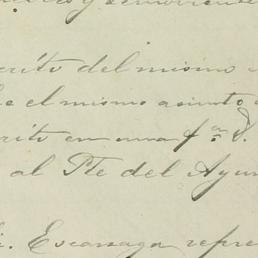 crito del mismo
el mismo asunto
rito en una fª 8.
al Pte del Ayun
Escarraga repre